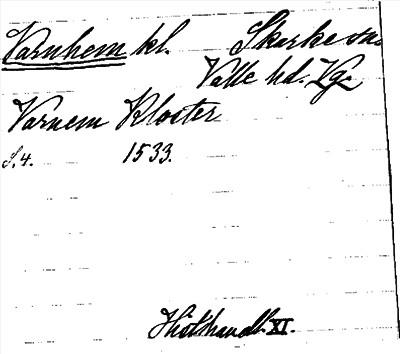 Varnhem kl. Skarke sn.
Valle hd. Vg.
Varnem Kloster
S. 4. 1533.
Hist. handl. XI.